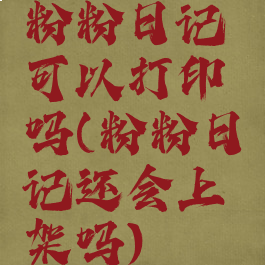 粉粉日记
可以打印
吗(粉粉日
记还会上
架吗)